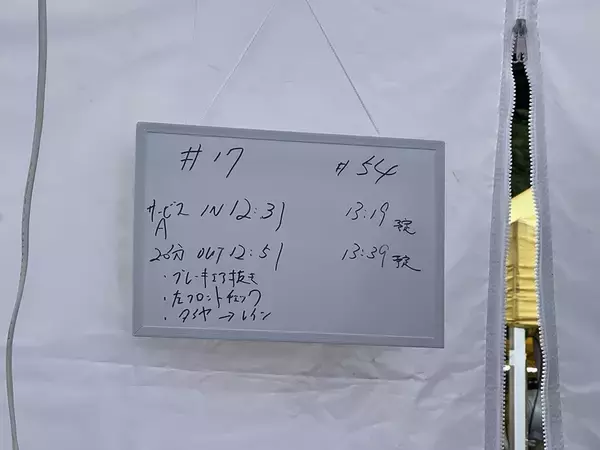 #17 #54
サービス IN 12:31 13:19 予定
A
20分 OUT 12:51 13:39 予定
・ブレーキエア抜き
・左フロントチェック
・タイヤ→レイン